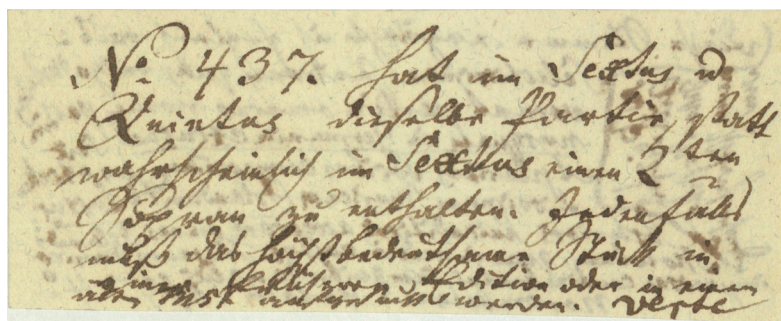 No 437. hat im Sextus u
Quintus dieselbe Partie, statt
wahrscheinlich im Sextus einen 2ten
Sopran zu enthalten. Jedenfalls
muß das höchst bedeutsame Stück in
einer früheren Edition oder in einem
alten Mst werden.